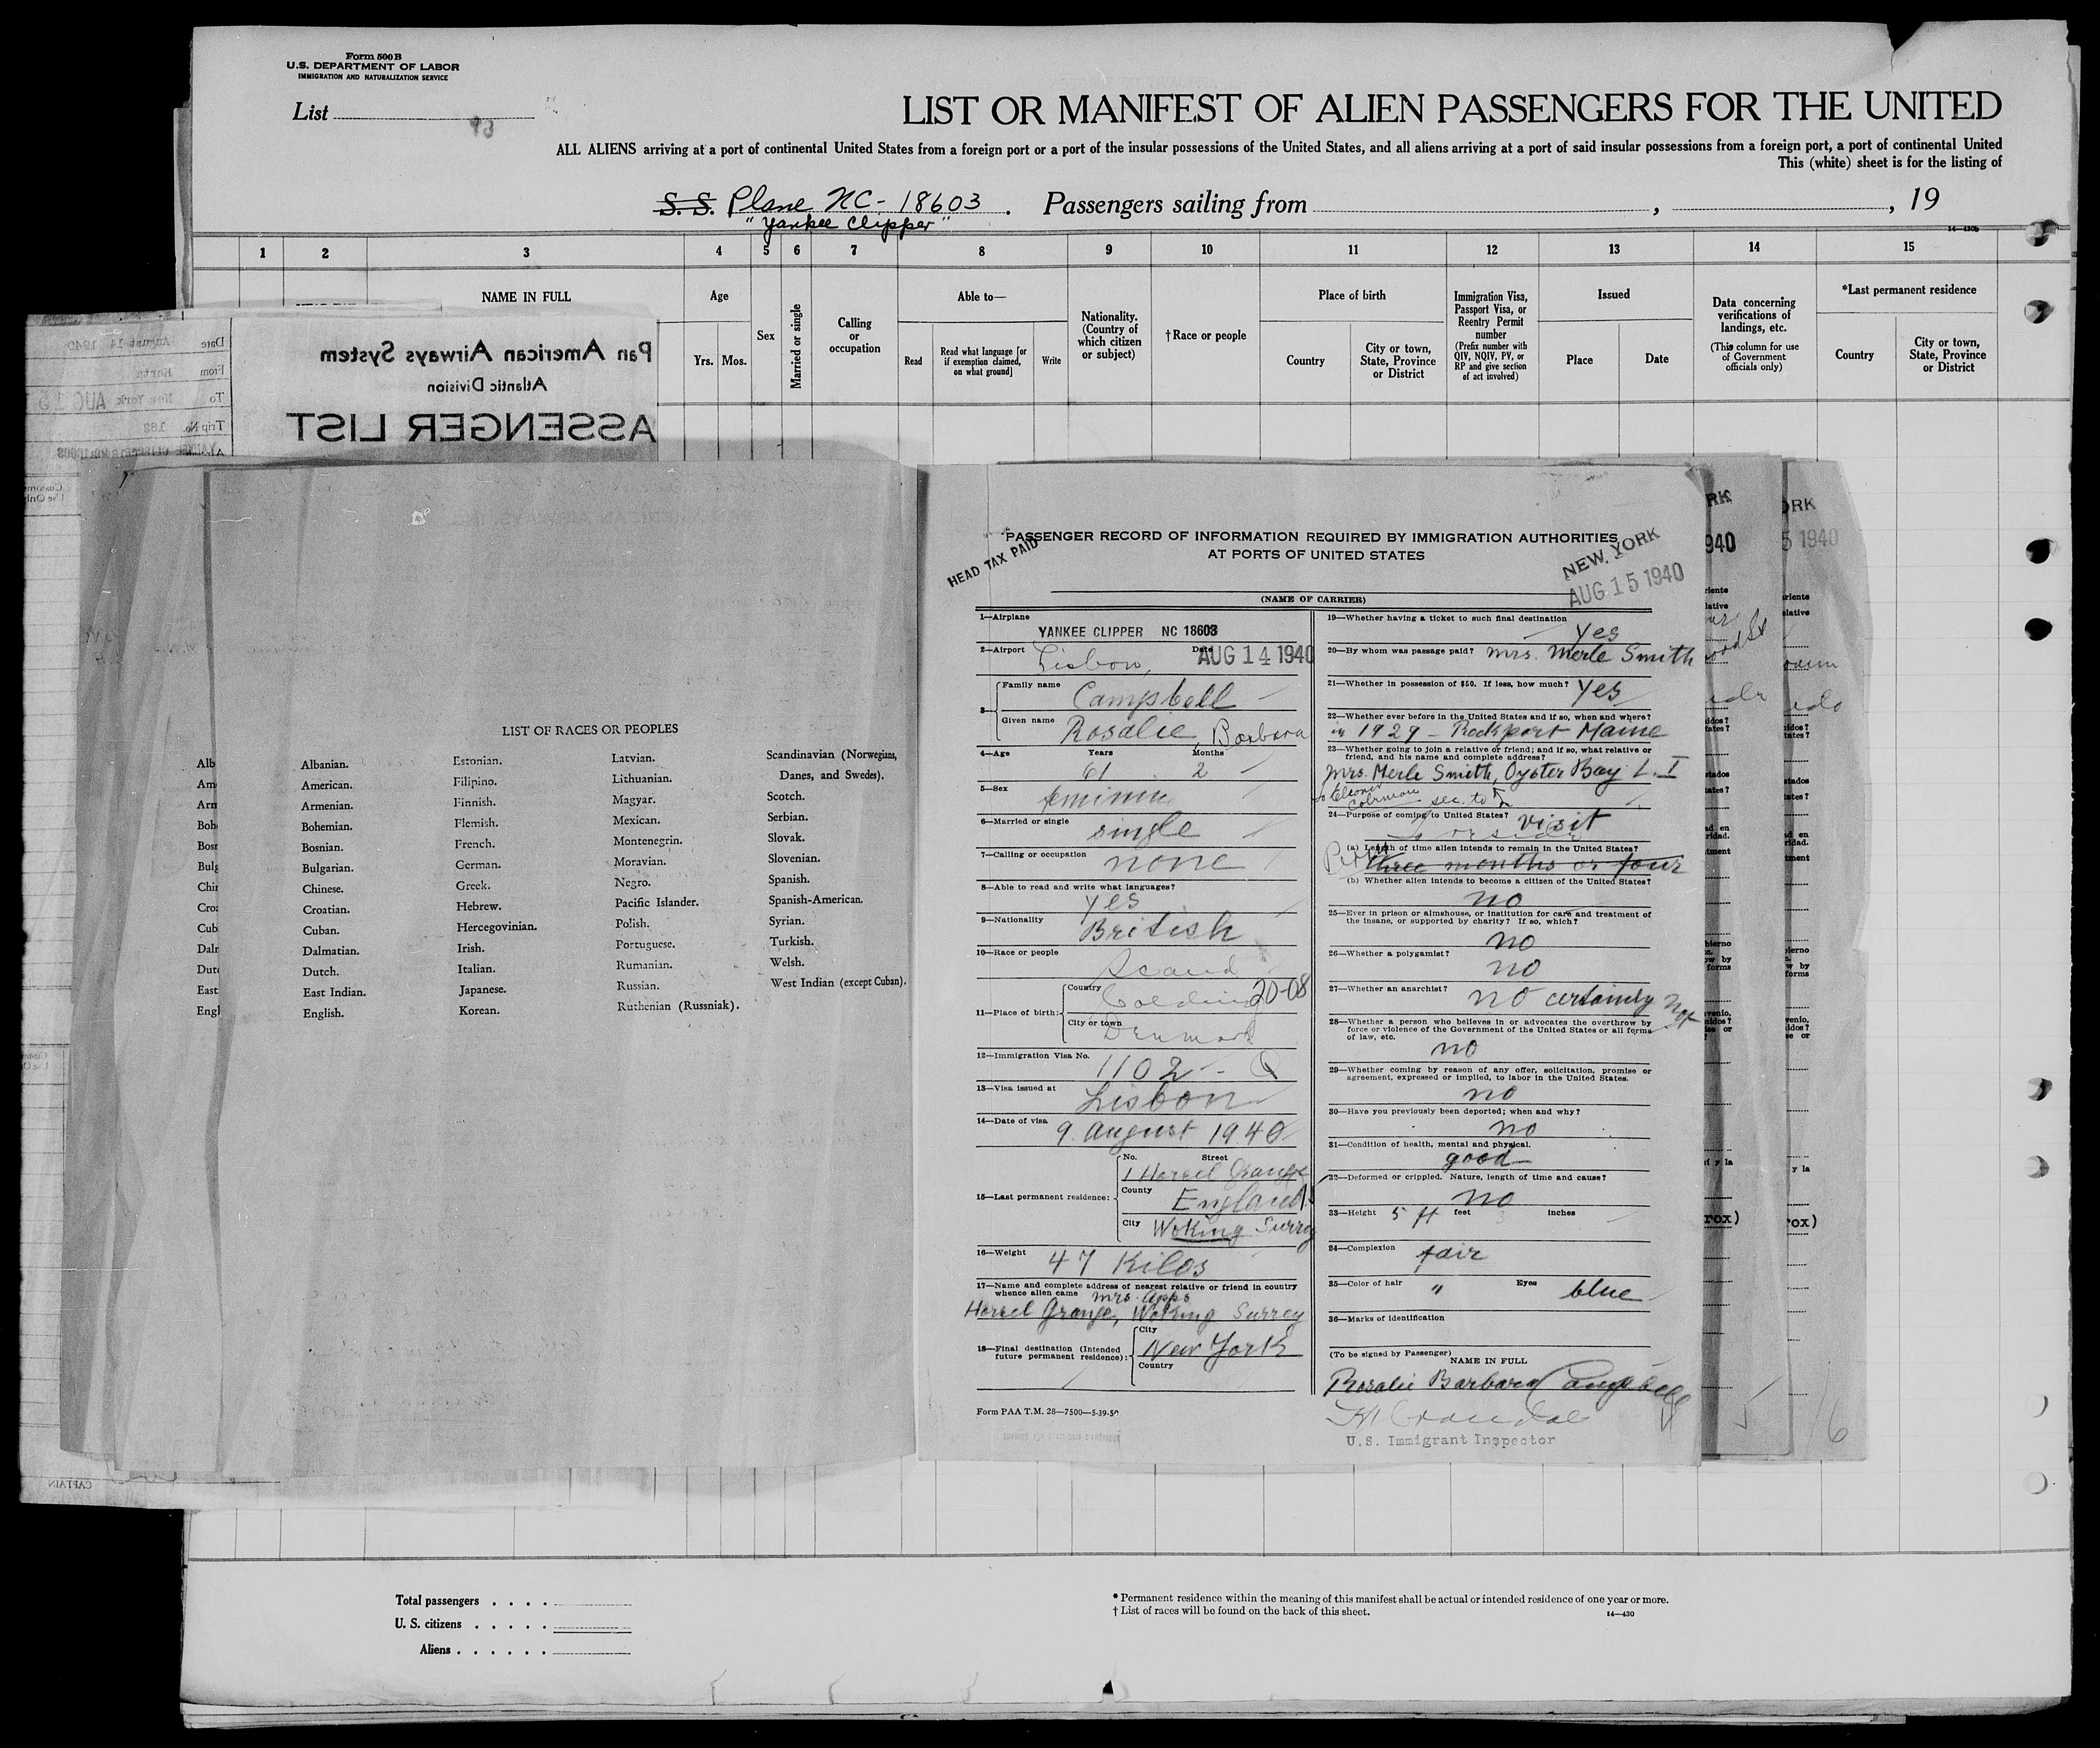 Form 500 B
U.S. DEPARTMENT OF LABOR
IMMIGRATION AND NATURALIZATION SERVICE
List
93
LIST OR MANIFEST OF ALIEN PASSENGERS FOR THE UNITED
ALL ALIENS arriving at a port of continental United States from a foreign port or a port of the insular possessions of the United States, and all aliens arriving at a port of said insular possessions from a foreign port, a port of continental United
This (white) sheet is for the listing of
S. S. Plane NC-18603 . Passengers sailing from , , 19
"Yankee Clipper"
14—430b
1 2 3 4 5 6 7 8 9 10 11 12 13 14 15
NAME IN FULL
Age
Yrs. Mos.
Sex
Married or single
Calling or occupation
Able to—
Read
Read what language [or if exemption claimed, on what ground]
Write
Nationality. (Country of which citizen or subject)
†Race or people
Place of birth
Country
City or town, State, Province or District
Immigration Visa, Passport Visa, or Reentry Permit number
(Prefix number with QIV, NQIV, PV, or RP and give section of act involved)
Issued
Place
Date
Data concerning verifications of landings, etc.
(This column for use of Government officials only)
*Last permanent residence
Country
City or town, State, Province or District
Pan American Airways System
Atlantic Division
ASSENGER LIST
Date August 14 1940
From Horta
To New York AUG 15
Trip No. 183
YANKEE CLIPPER NC 18603
CAPTAIN
LIST OF RACES OR PEOPLES
Alb
Am
Arm
Boh
Bos
Bulg
Chi
Cro
Cub
Dal
Dut
East
Engl
Albanian.
American.
Armenian.
Bohemian.
Bosnian.
Bulgarian.
Chinese.
Croatian.
Cuban.
Dalmatian.
Dutch.
East Indian.
English.
Estonian.
Filipino.
Finnish.
Flemish.
French.
German.
Greek.
Hebrew.
Hercegovinian.
Irish.
Italian.
Japanese.
Korean.
Latvian.
Lithuanian.
Magyar.
Mexican.
Montenegrin.
Moravian.
Negro.
Pacific Islander.
Polish.
Portuguese.
Rumanian.
Russian.
Ruthenian (Russniak).
Scandinavian (Norwegians,
Danes, and Swedes).
Scotch.
Serbian.
Slovak.
Slovenian.
Spanish.
Spanish-American.
Syrian.
Turkish.
Welsh.
West Indian (except Cuban).
PASSENGER RECORD OF INFORMATION REQUIRED BY IMMIGRATION AUTHORITIES
AT PORTS OF UNITED STATES
HEAD TAX PAID
NEW YORK
AUG 15 1940
(NAME OF CARRIER)
1—Airplane
YANKEE CLIPPER NC 18603
2—Airport Lisbon, Date AUG 14 1940
3— Family name Campbell
Given name Rosalie, Barbara
4—Age Years 61 Months 2
5—Sex feminine
6—Married or single single
7—Calling or occupation none
8—Able to read and write what languages?
yes
9—Nationality British
10—Race or people Scand
11—Place of birth: Country Colding 20-08
City or town Denmark
12—Immigration Visa No.
1102 - Q
13—Visa issued at Lisbon
14—Date of visa 9. August 1940
15—Last permanent residence: No. Street
1 Horsel Grange
County England
City Woking Surrey
16—Weight 47 Kilos
17—Name and complete address of nearest relative or friend in country
whence alien came Mrs. Apps
Horsel Grange, Woking Surrey
18—Final destination (Intended future permanent residence): City New York
Country
Form PAA T.M. 28—7500—5-39-50
19—Whether having a ticket to such final destination
Yes
20—By whom was passage paid? Mrs. Merle Smith
21—Whether in possession of $50. If less, how much? Yes
22—Whether ever before in the United States and if so, when and where?
in 1929 - Rockport Maine
23—Whether going to join a relative or friend; and if so, what relative or
friend, and his name and complete address?
Mrs. Merle Smith, Oyster Bay L. I
sec. to
24—Purpose of coming to United States? visit
(a) Length of time alien intends to remain in the United States?
three months or four
(b) Whether alien intends to become a citizen of the United States?
no
25—Ever in prison or almshouse, or institution for care and treatment of
the insane, or supported by charity? If so, which?
no
26—Whether a polygamist?
no
27—Whether an anarchist? no certainly not
28—Whether a person who believes in or advocates the overthrow by
force or violence of the Government of the United States or all forms
of law, etc.
no
29—Whether coming by reason of any offer, solicitation, promise or
agreement, expressed or implied, to labor in the United States.
no
30—Have you previously been deported; when and why?
no
31—Condition of health, mental and physical.
good
32—Deformed or crippled. Nature, length of time and cause?
no
33—Height 5 ft feet 3 inches
34—Complexion fair
35—Color of hair " Eyes blue
36—Marks of identification
(To be signed by Passenger)
NAME IN FULL
Rosalie Barbara Campbell
U.S. Immigrant Inspector
Total passengers
U. S. citizens
Aliens
* Permanent residence within the meaning of this manifest shall be actual or intended residence of one year or more.
† List of races will be found on the back of this sheet.
14—430